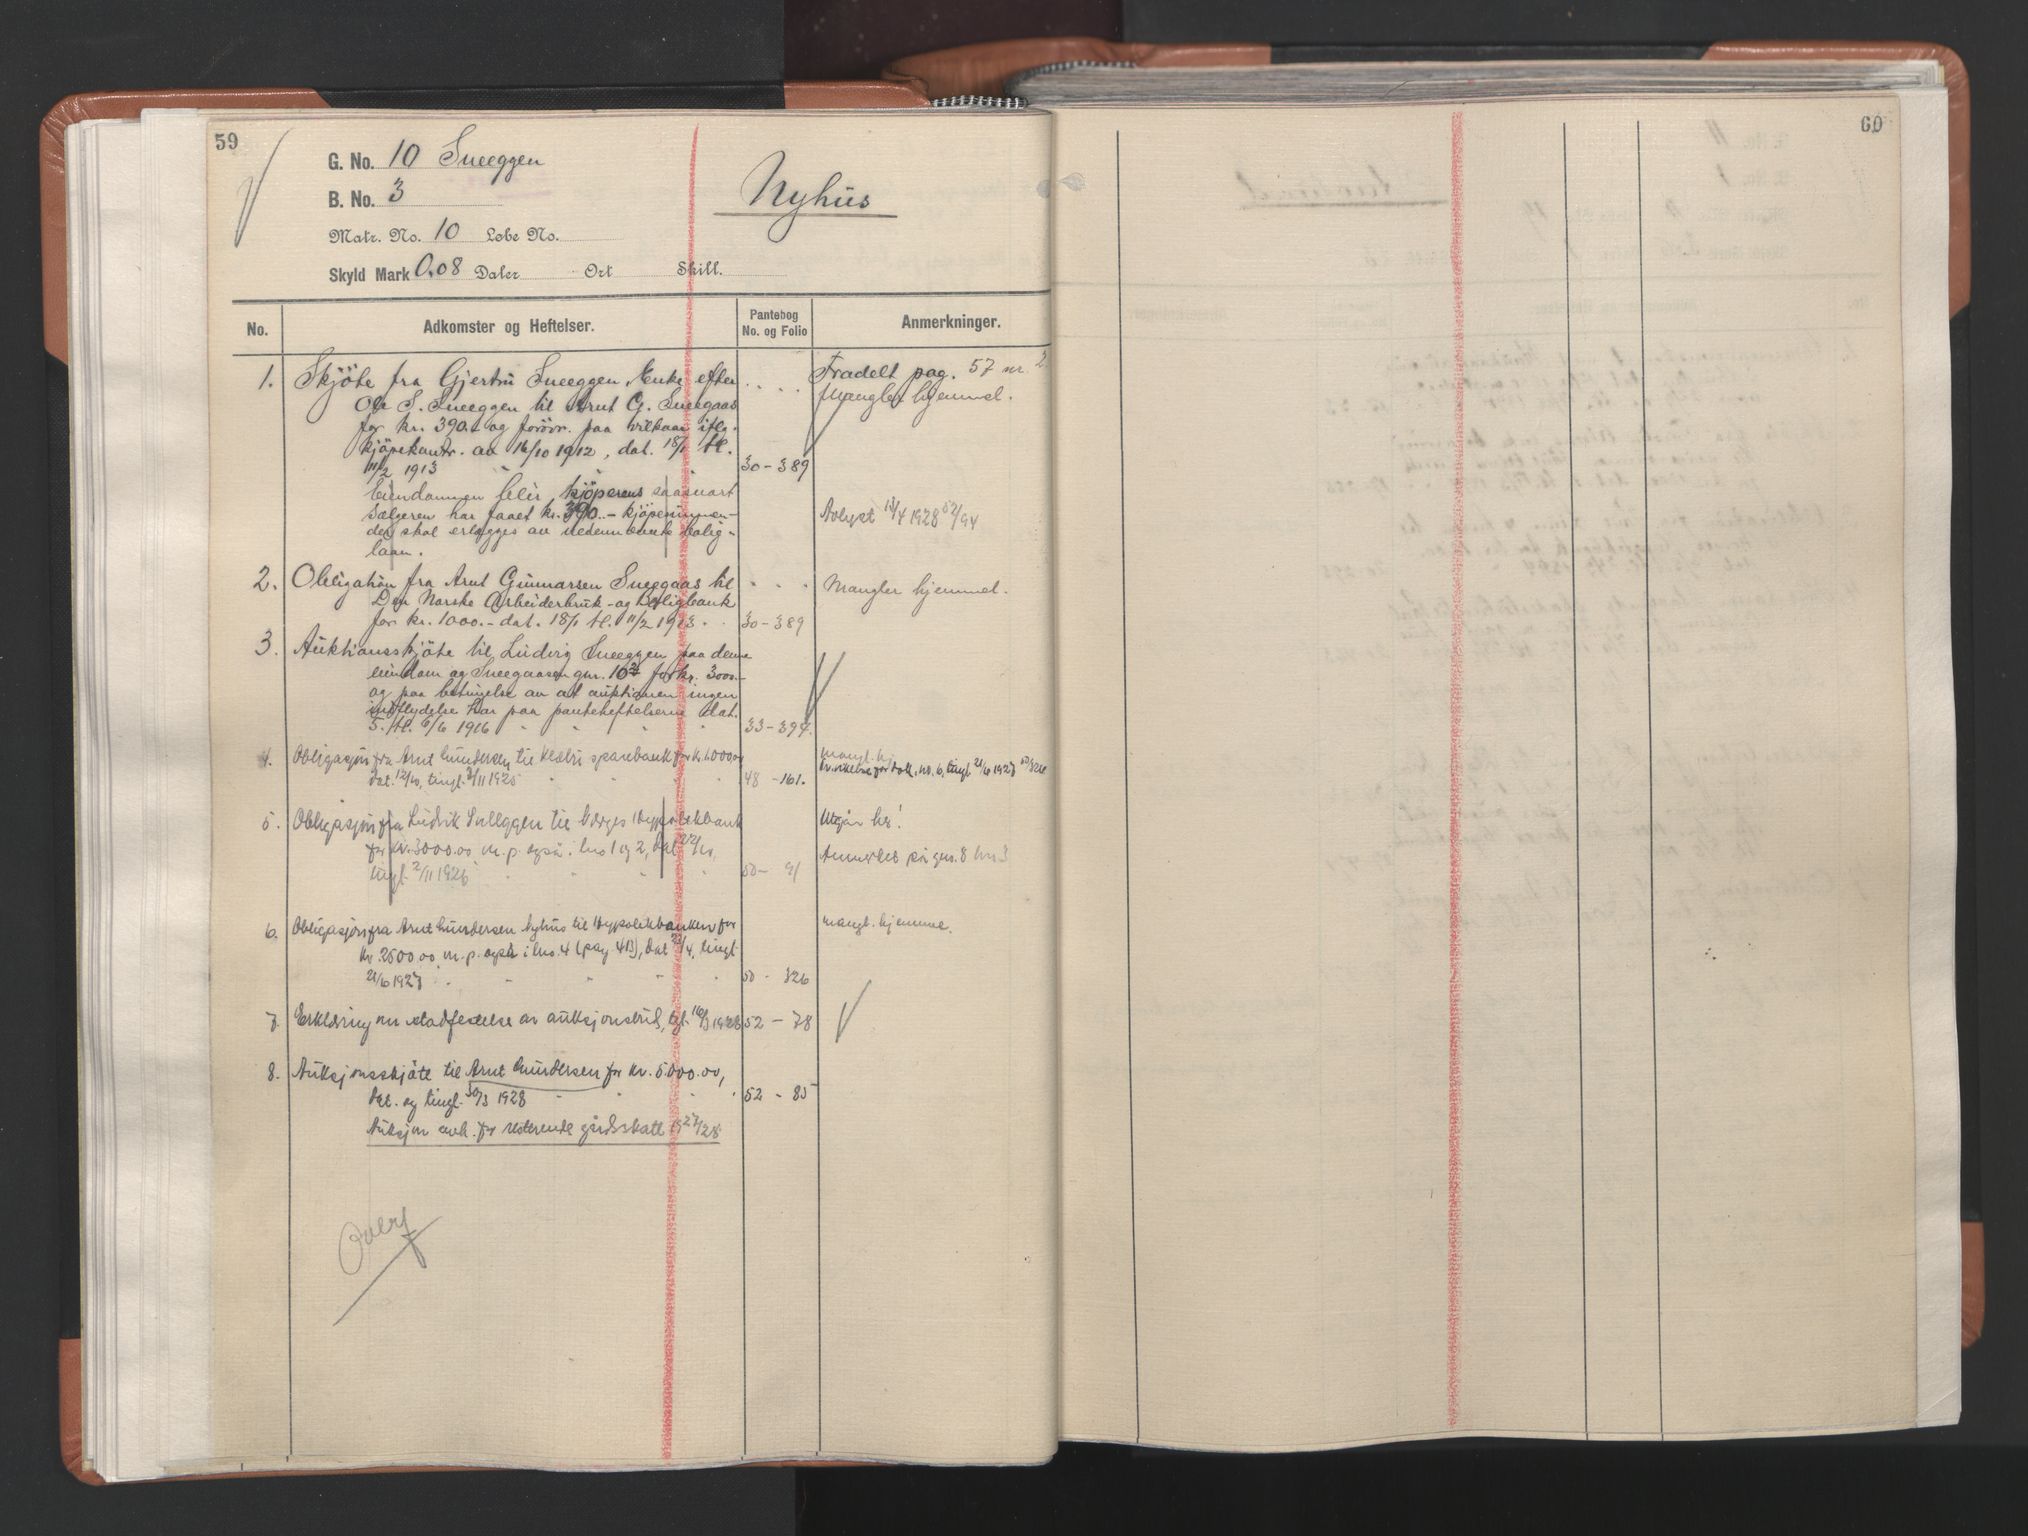 59
G. No. 10 Sneeggen
B. No. 3
Matr. No. 10 Løbe No.
Skyld Mark 0.08 Daler Ort Skill.
Nyhus
No. Adkomster og Heftelser. Pantebog No. og Folio Anmerkninger.
1. Skjöte fra Gjertru Sneeggen, Enke efter . . . . Fradelt pag. 57 nr. 2
Ole S. Sneeggen til Arnt G. Sneegaas Mangler hjemmel.
for kr. 390.- og forövr. paa vilkaar iflg.
kjöpekontr. av 16/10 1912, dat. 18/1 tl.
11/2 1913 30-389
Eiendommen blir kjöperens saasnart
sælgeren har faaet kr. 390.- kjöpesummen Avlyst 13/4 1928 52/94
der skal erlægges av nedennævnte bolig-
laan.
2. Obligation fra Arnt Gunnarsen Sneegaas til . . . Mangler hjemmel.
Den Norske Arbeiderbruk- og Boligbank
for kr. 1000.- dat. 18/1 tl. 11/2 1913. . 30-389
3. Auktionsskjöte til Ludvig Sneeggen paa denne
eiendom og Sneegaasen gnr. 10 for kr. 3000.-
og paa betingelse av at auktionen ingen
indflydelse har paa pantehefteserne dat.
5. tl. 6/6 1916 33-394.
4. Obligasjon fra Arnt Gundersen til Klæbu sparebank for kr. 1000.00 mangl. hj.
dat. 12/10, tingl. 2/11 1925 48-161. Pr. vikelse for dok. nr. 6, tingl. 21/6 1927 50/326
5. Obligasjon fra Ludvik Sneeggen til Norges Hypotekbank Utgår her!
for kr. 3000.00 m.p. også i bno 1 og 2, dat 22/10, Anmerket på gnr. 8 bno 3
tingl. 2/11 1926 50- 91
6. Obligasjon fra Arnt Gundersen Nyhus til Hypotekbanken for mangl. hjemme.
kr. 2500.00 m.p. også i bno. 4 (pag 413), dat 23/4, tingl
21/6 1927 50-326
7. Erklæring om stadfestelse av auksjonsbud, tgl. 16/3 1928 52-78
8. Auksjonsskjöte til Arnt Gundersen for kr. 5000.00,
dat. og tingl. 30/3 1928 52-85
Auksjon avh. for resterende gårdsskatt 1927/28
Overf
60